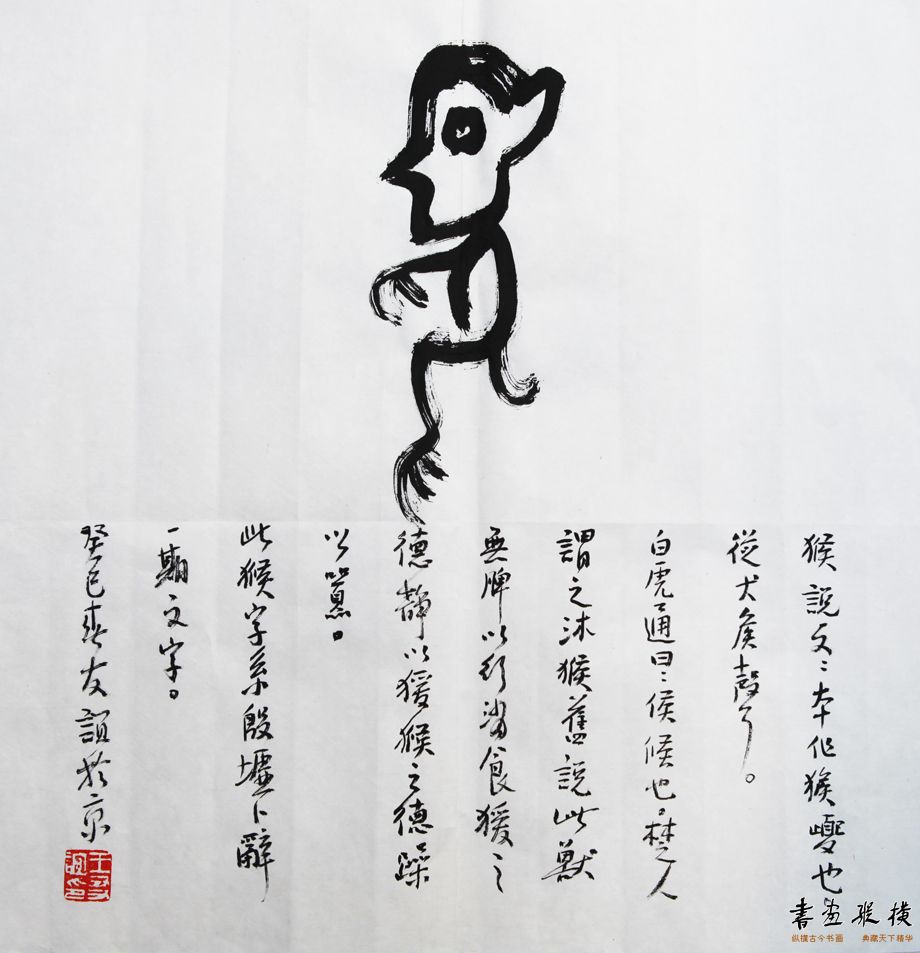 猴說文:本作猴夒也。
從犬矦聲。
白虎通曰:侯候也。楚人
謂之沐猴舊說此獸
無脾以行消食猨之
德靜以猨猴之德躁
以囂。
此猴字系殷墟卜辭
一期文字。
癸巳春友誼於京
書畫縱橫
纵横古今书画 典藏天下精华